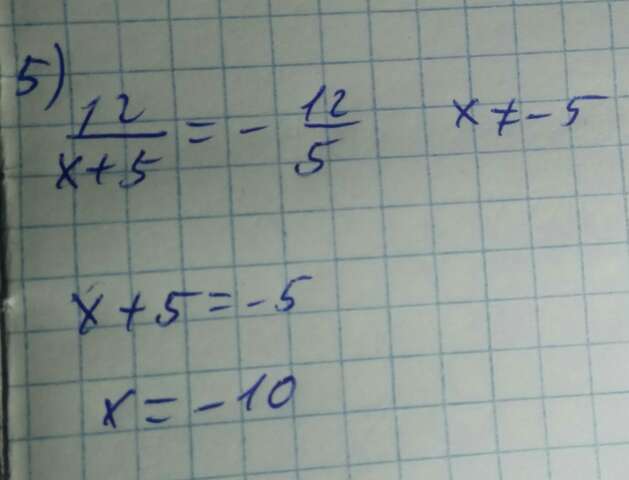 5)
12/(x+5) = - 12/5 x ≠ -5
x + 5 = -5
x = -10